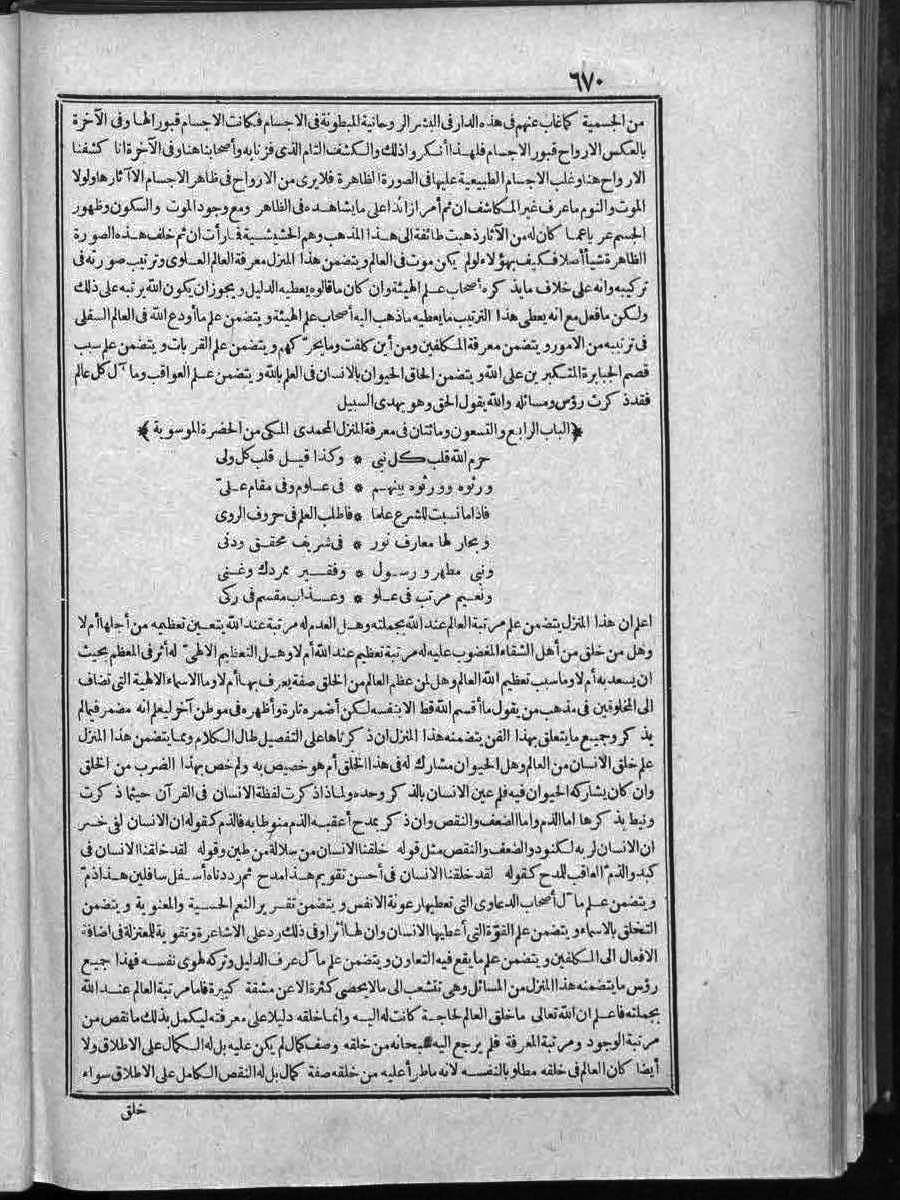 ٦٧٠
من الجسمية كما غاب عنهم فى هذه الدار فى البشر الروحانية المبطونة فى الاجسام فكانت الاجسام قبورا لها وفى الآخرة
بالعكس الارواح قبور الاجسام فلهذا أنكروا ذلك والكشف التام الذى فزنا به وأصحابنا هنا وفى الآخرة انا كشفنا
الارواح هنا وغلب الاجسام الطبيعية عليها فى الصورة الظاهرة فلا يرى من الارواح فى ظاهر الاجسام الا آثارها ولولا
الموت والنوم ما عرف غير المكاشف ان ثم أمرا زائدا على ما يشاهده فى الظاهر ومع وجود الموت والسكون وظهور
الجسم عريا عما كان له من الآثار ذهبت طائفة الى هذا المذهب وهم الحشيشية فارأت ان ثم خلف هذه الصورة
الظاهرة شيأ أصلا فكيف بهؤلاء لو لم يكن موت فى العالم ويتضمن هذا المنزل معرفة العالم العلوى وترتيب صورته فى
تركيبه وانه على خلاف ما يذكره أصحاب علم الهيئة وان كان ما قالوه يعطيه الدليل ويجوز ان يكون الله يرتبه على ذلك
ولكن ما فعل مع انه يعطى هذا الترتيب ما يعطيه ما ذهب اليه أصحاب علم الهيئة ويتضمن علم ما أودع الله فى العالم السفلى
فى ترتيبه من الامور ويتضمن معرفة المكلفين ومن أين كلفت وما يحرّكهم ويتضمن علم القربات ويتضمن علم سبب
قصم الجبابرة المتكبرين على الله ويتضمن الحاق الحيوان بالانسان فى العلم بالله ويتضمن علم العواقب وما آل كل عالم
فقد ذكرت رؤس ومسائله والله يقول الحق وهو يهدى السبيل
﴿الباب الرابع والتسعون ومائتان فى معرفة المنزل المحمدى المكى من الحضرة الموسوية﴾
حرم الله قلب كل نبى * وكذا قيل قلب كل ولى
ورثوه وورثوه بينهم * فى علوم وفى مقام علىّ
فاذا ما نسبت للشرع علما * فاطلب العلم فى حروف الروى
وبحار لها معارف نور * فى شريف محقق ودنى
ونبى مطهر ورسول * وفقير بمردك وغنى
ونعيم مرتب فى علو * وعذاب مقسم فى ركى
اعلم ان هذا المنزل يتضمن علم مرتبة العالم عند الله بجملته وهل العدم له مرتبة عند الله يتعين تعظيمه من أجلها أم لا
وهل من خلق من أهل الشقاء المغضوب عليه له مرتبة تعظيم عند الله أم لا وهل التعظيم الالهىّ له أثر فى المعظم بحيث
ان يسعد به أم لا وما سبب تعظيم الله العالم وهل لمن عظم العالم من الخلق صفة يعرف بها أم لا وما الاسماء الالهية التى تضاف
الى المخلوقين فى مذهب من يقول ما أقسم الله قط الا بنفسه لكن أضمره تارة وأظهره فى موطن آخر ليعلم انه مضمر فيما لم
يذكر وجميع ما يتعلق بهذا الفن يتضمنه هذا المنزل ان ذكرناها على التفصيل طال الكلام ومما يتضمن هذا المنزل
علم خلق الانسان من العالم وهل الحيوان مشارك له فى هذا الخلق أم هو خصيص به ولم خص بهذا الضرب من الخلق
وان كان يشاركه الحيوان فيه فلم عين الانسان بالذكر وحده ولماذا ذكرت لفظة الانسان فى القرآن حيثما ذكرت
ونيط بذكرها اما الذم واما الضعف والنقص وان ذكر بمدح أعقبه الذم منوطا به فالذم كقوله ان الانسان لفى خسر
ان الانسان لربه لكنود والضعف والنقص مثل قوله خلقنا الانسان من سلالة من طين وقوله لقد خلقنا الانسان فى
كبد والذمّ العاقب للمدح كقوله لقد خلقنا الانسان فى أحسن تقويم هذا مدح ثم رددناه أسفل سافلين هذا ذمّ
ويتضمن علم ما آل أصحاب الدعاوى التى تعطيها رعونة الانفس ويتضمن تقرير النعم الحسية والمعنوية ويتضمن
التخلق بالاسماء ويتضمن علم القوّة التى أعطيها الانسان وان لها أثرا وفى ذلك رد على الاشاعرة وتقوية للمعتزلة فى اضافة
الافعال الى المكلفين ويتضمن علم ما يقع فيه التعاون ويتضمن علم ما آل عرف الدليل وتركه لهوى نفسه فهذا جميع
رؤس ما يتضمنه هذا المنزل من المسائل وهى تتشعب الى ما لا يحصى كثرة الا عن مشقة كبيرة فاما مرتبة العالم عند الله
بجملته فاعلم ان الله تعالى ما خلق العالم لحاجة كانت له اليه وانما خلقه دليلا على معرفته ليكمل بذلك ما نقص من
مرتبة الوجود ومرتبة المعرفة فلم يرجع اليه سبحانه من خلقه وصف كمال لم يكن عليه بل له الكمال على الاطلاق ولا
أيضا كان العالم فى خلقه مطلوبا لنفسه لانه ما طرأ عليه من خلقه صفة كمال بل له النقص الكامل على الاطلاق سواء
خلق